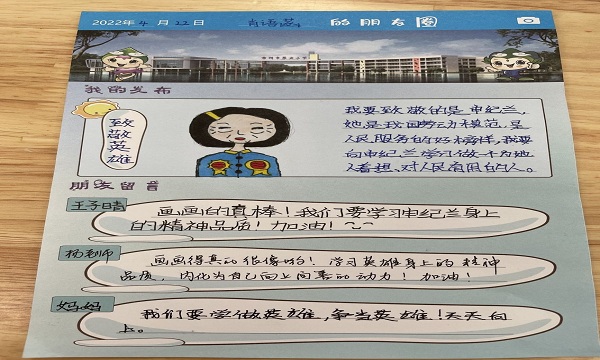 2022年4月22日 肖语蕊 的朋友圈
我的发布
致敬英雄
我要致敬的是申纪兰,
她是我国劳动模范,是
人民服务的好榜样,我要
向申纪兰学习做一个为他
人着想,对人民有用的人。
朋友留言
王子晴
画画的真棒!我们要学习申纪兰身上
的精神品质!加油!~~
杨老师
画画得真的很像哟!学习英雄身上的精神
品质,内化为自己向上向善的动力!加油!
妈妈
我们要学做英雄,争当英雄!天天向
上。